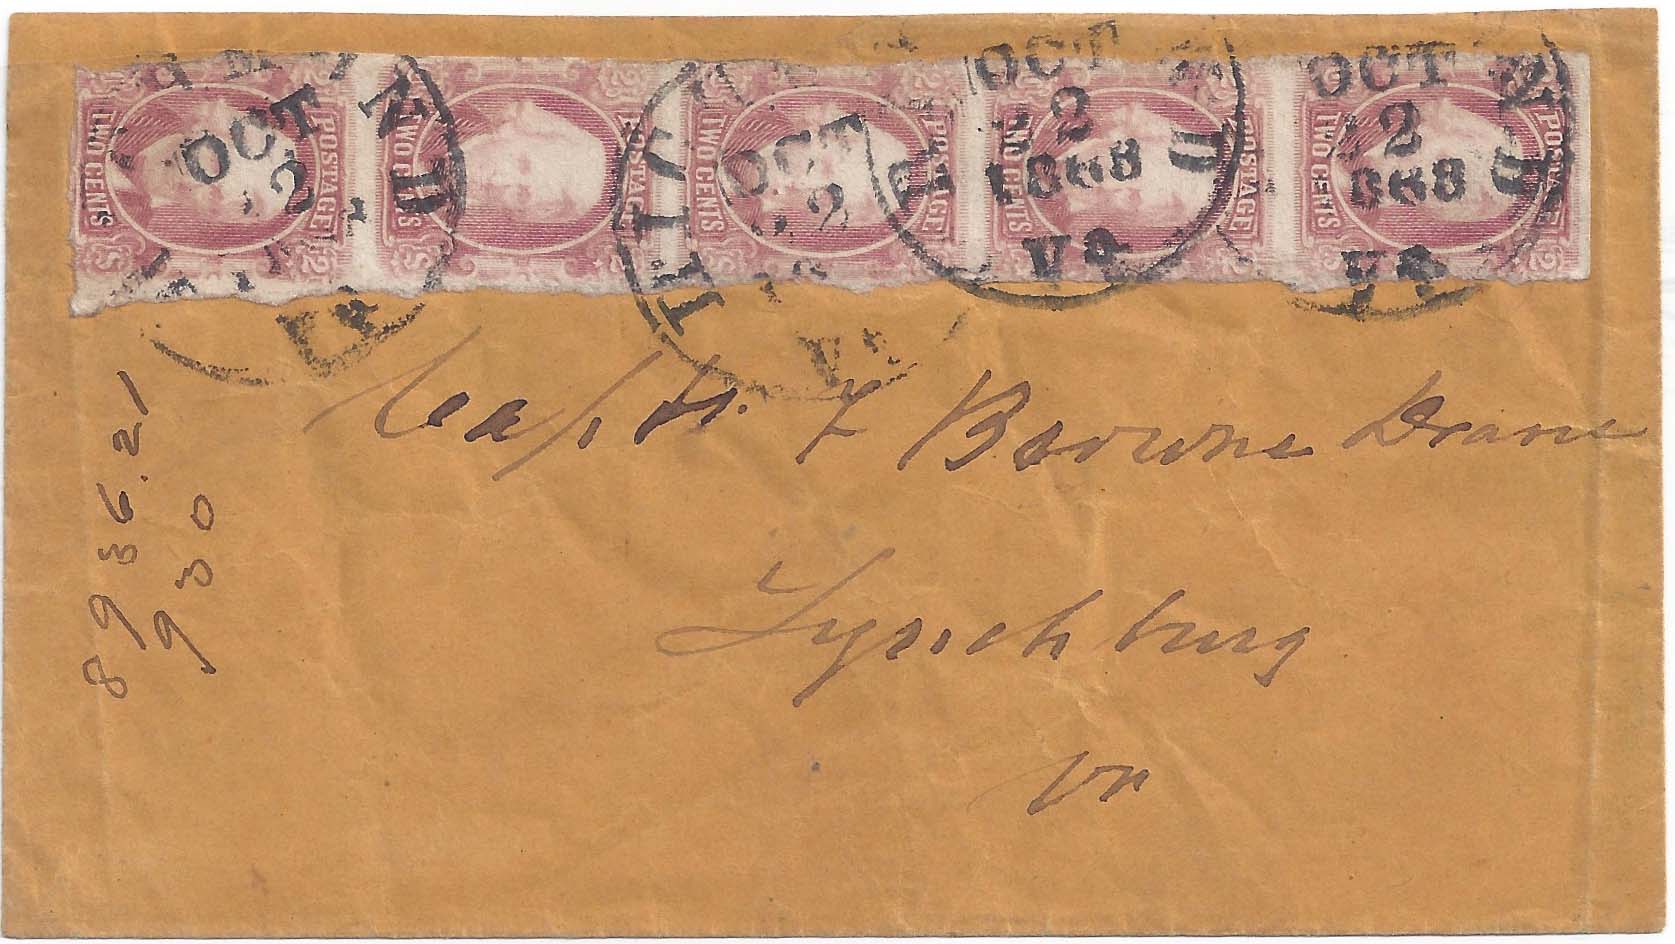 TWO CENTS POSTAGE
TWO CENTS POSTAGE
TWO CENTS POSTAGE
TWO CENTS POSTAGE
TWO CENTS POSTAGE
OCT
2
Va
OCT
2
Va
OCT
2
1863
Va
OCT
2
1863
Va
Capt. Browne Drane
Lynchburg
Va
8936.21
930